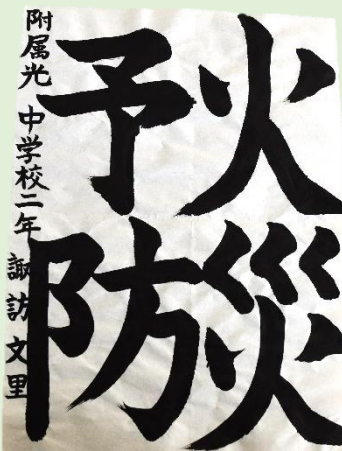 火災
予防
附属光中学校二年 諏訪文里